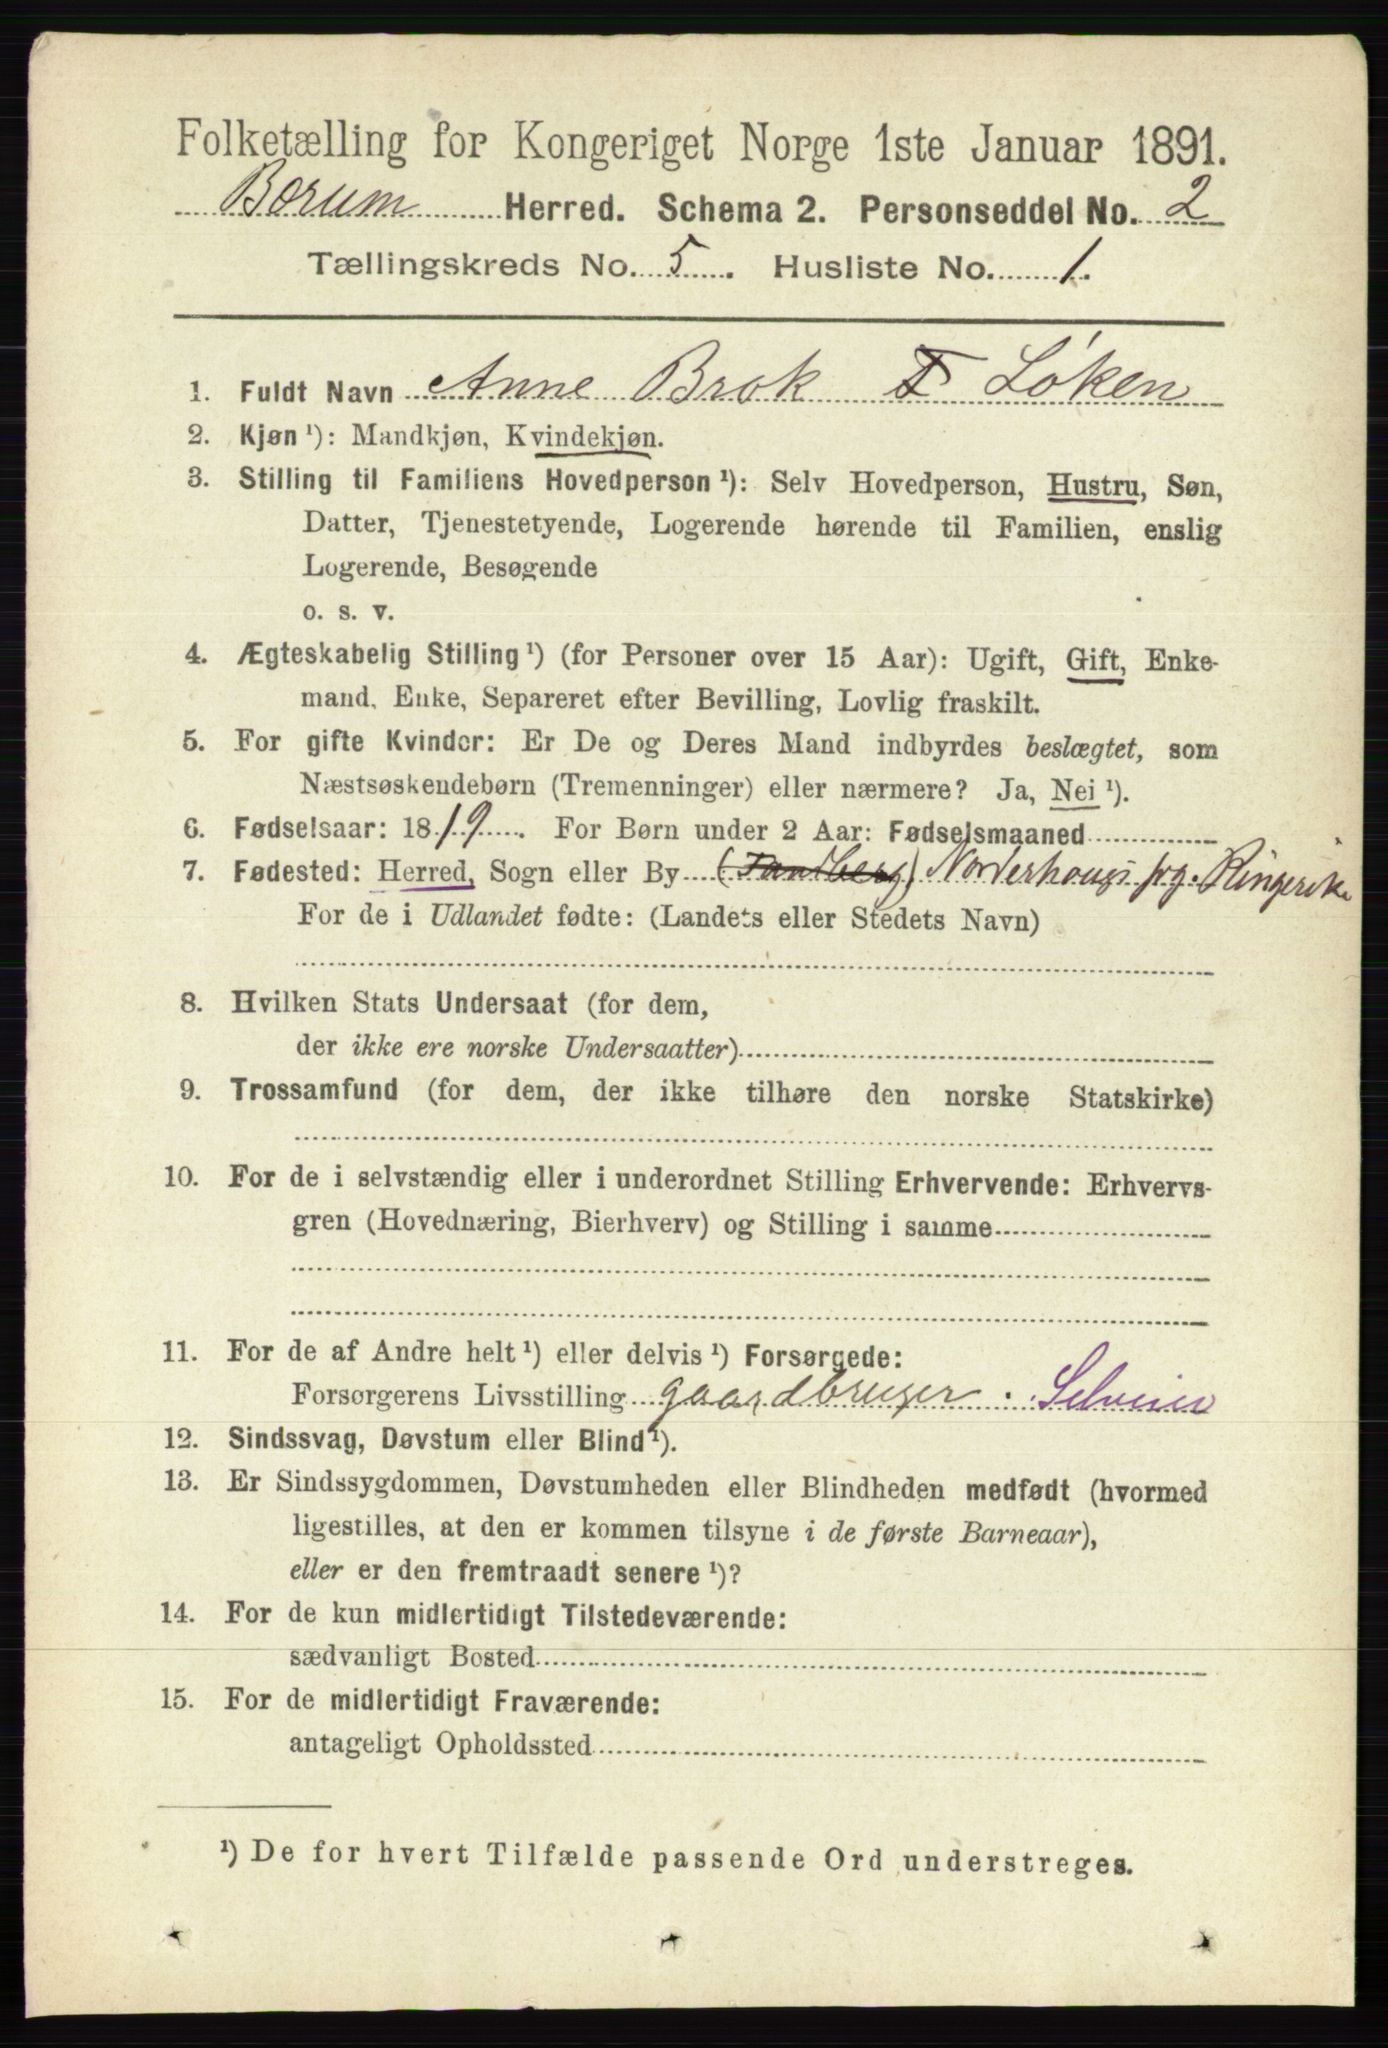 Folketælling for Kongeriget Norge 1ste Januar 1891.
Bærum Herred. Schema 2. Personseddel No. 2
Tællingskreds No. 5. Husliste No. 1.
1. Fuldt Navn Anne Brok F Løken
2. Kjøn ¹): Mandkjøn, Kvindekjøn.
3. Stilling til Familiens Hovedperson ¹): Selv Hovedperson, Hustru, Søn,
Datter, Tjenestetyende, Logerende hørende til Familien, enslig
Logerende, Besøgende
o. s. v.
4. Ægteskabelig Stilling ¹) (for Personer over 15 Aar): Ugift, Gift, Enke-
mand, Enke, Separeret efter Bevilling, Lovlig fraskilt.
5. For gifte Kvinder: Er De og Deres Mand indbyrdes beslægtet, som
Næstsøskendebørn (Tremenninger) eller nærmere? Ja, Nei ¹).
6. Fødselsaar: 1819. For Børn under 2 Aar: Fødselsmaaned
7. Fødested: Herred, Sogn eller By (Tandberg) Norderhougs pg. Ringerike
For de i Udlandet fødte: (Landets eller Stedets Navn)
8. Hvilken Stats Undersaat (for dem,
der ikke ere norske Undersaatter)
9. Trossamfund (for dem, der ikke tilhøre den norske Statskirke)
10. For de i selvstændig eller i underordnet Stilling Erhvervende: Erhvervs-
gren (Hovednæring, Bierhverv) og Stilling i samme
11. For de af Andre helt ¹) eller delvis ¹) Forsørgede:
Forsørgerens Livsstilling gaardbruger. Selveier
12. Sindssvag, Døvstum eller Blind ¹).
13. Er Sindssygdommen, Døvstumheden eller Blindheden medfødt (hvormed
ligestilles, at den er kommen tilsyne i de første Barneaar),
eller er den fremtraadt senere ¹)?
14. For de kun midlertidigt Tilstedeværende:
sædvanligt Bosted
15. For de midlertidigt Fraværende:
antageligt Opholdssted
¹) De for hvert Tilfælde passende Ord understreges.